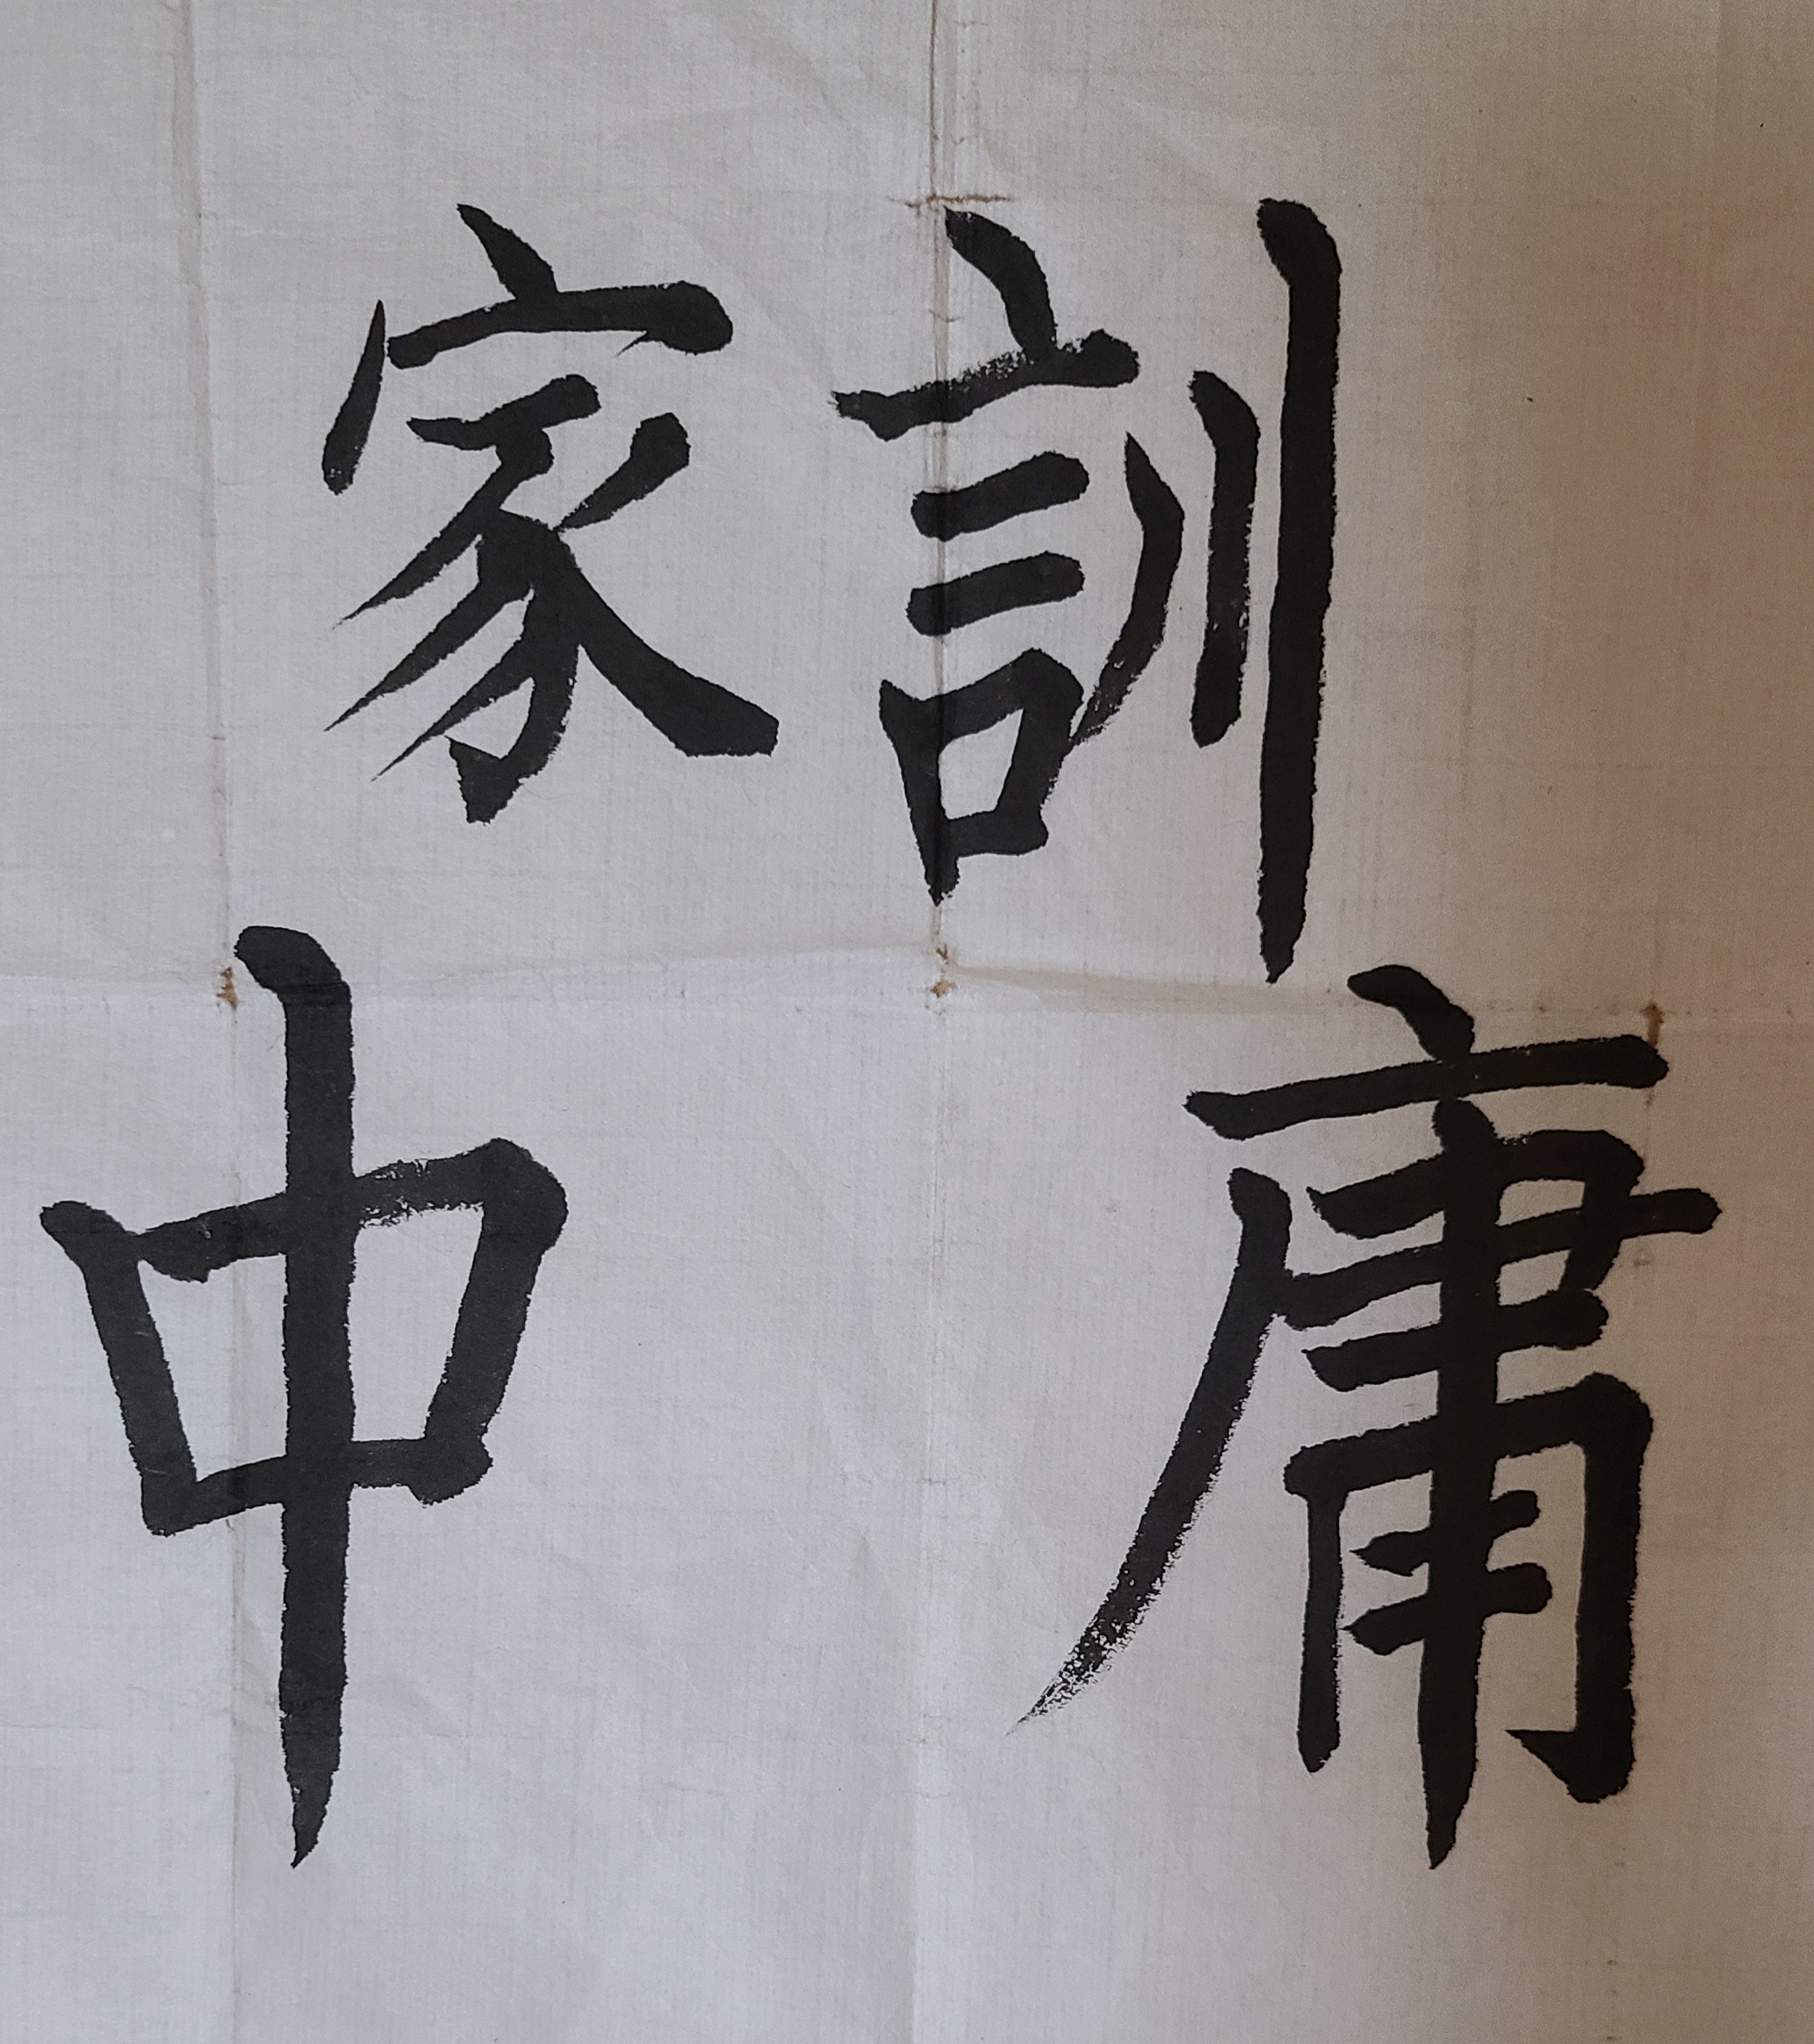 家訓
中庸